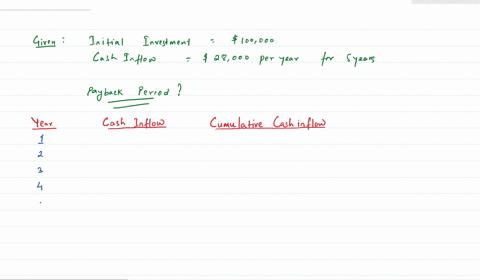 Given : Initial Investment = $100,000
Cash Inflow = $28,000 per year for 5 years
Payback Period ?
Year Cash Inflow Cumulative Cash inflow
1
2
3
4